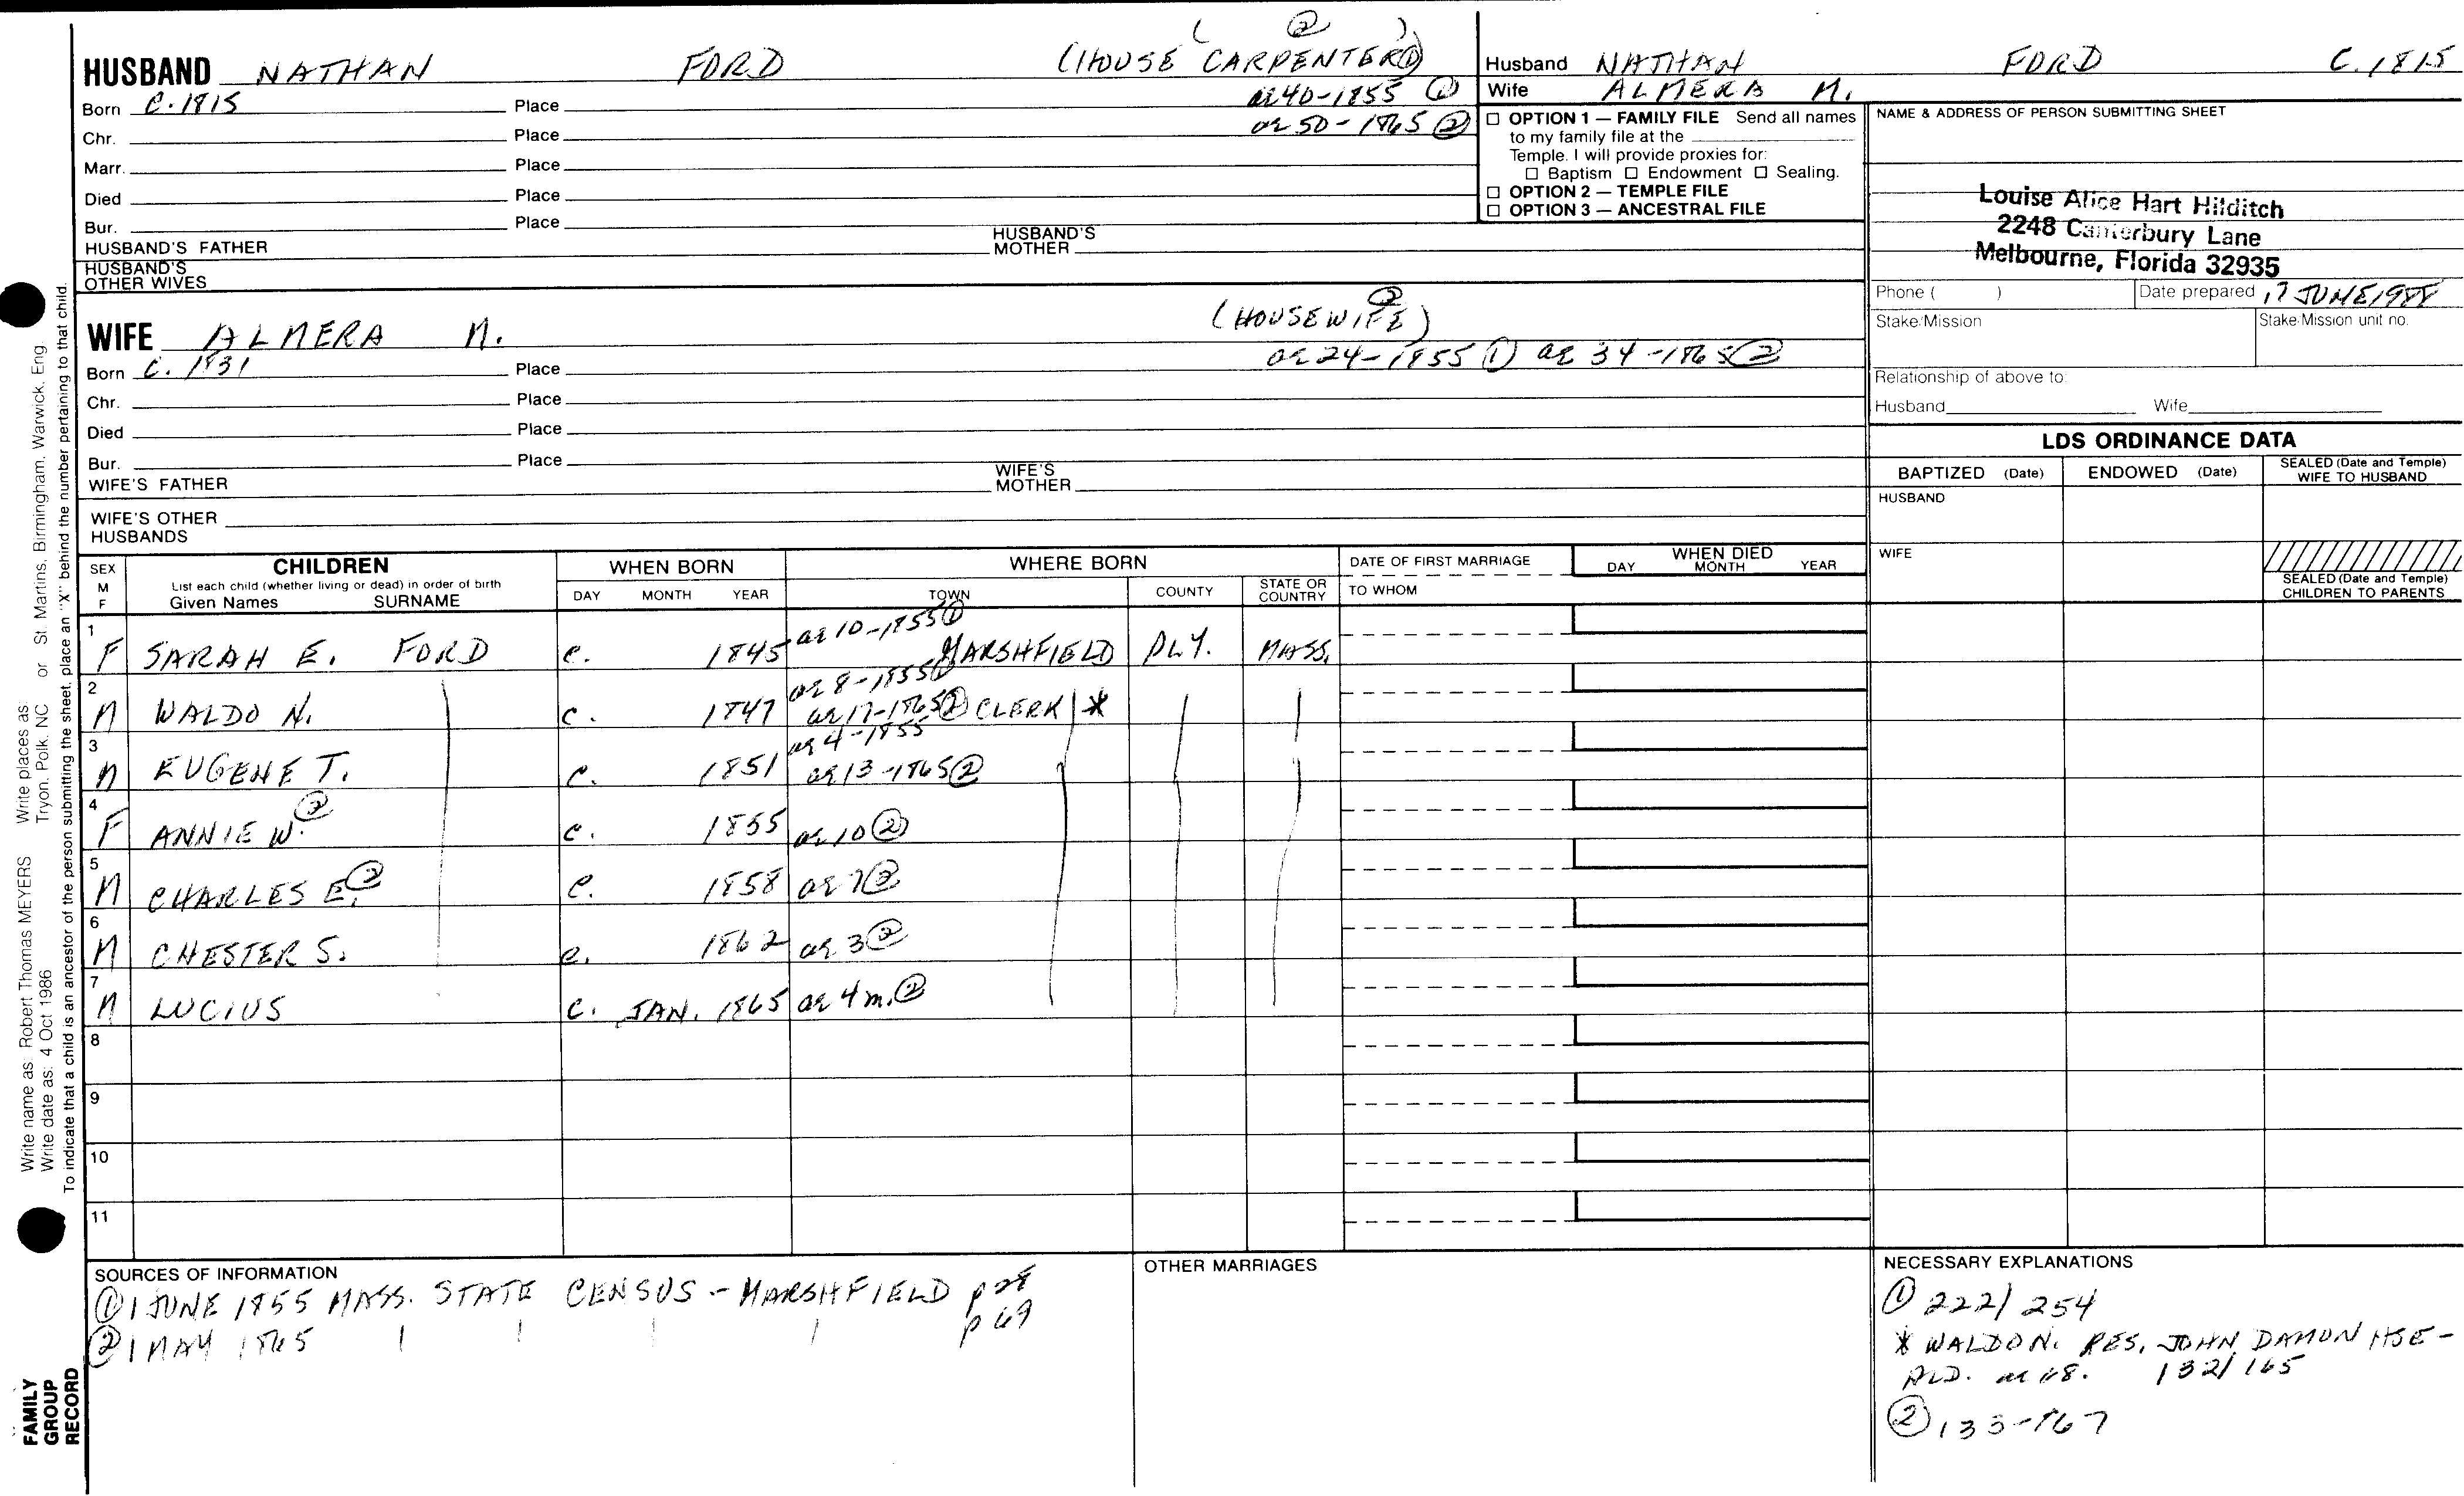 ( ② )
HUSBAND NATHAN FORD (HOUSE CARPENTER①)
Born C. 1815 Place ae 40-1855 ①
ae 50-1865 ②
Chr. Place
Marr. Place
Died Place
Bur. Place
HUSBAND'S FATHER HUSBAND'S MOTHER
HUSBAND'S OTHER WIVES
WIFE ALMERA M. (HOUSEWIFE) ②
Born C. 1831 Place ae 24-1855 ① ae 34-1865 ②
Chr. Place
Died Place
Bur. Place
WIFE'S FATHER WIFE'S MOTHER
WIFE'S OTHER HUSBANDS
Husband NATHAN FORD C. 1815
Wife ALMERA M.
☐ OPTION 1 — FAMILY FILE Send all names
to my family file at the
Temple. I will provide proxies for:
☐ Baptism ☐ Endowment ☐ Sealing.
☐ OPTION 2 — TEMPLE FILE
☐ OPTION 3 — ANCESTRAL FILE
NAME & ADDRESS OF PERSON SUBMITTING SHEET
Louise Alice Hart Hilditch
2248 Canterbury Lane
Melbourne, Florida 32935
Phone ( ) Date prepared 17 JUNE 1988
Stake/Mission Stake/Mission unit no.
Relationship of above to:
Husband Wife
LDS ORDINANCE DATA
BAPTIZED (Date) ENDOWED (Date) SEALED (Date and Temple) WIFE TO HUSBAND
HUSBAND
WIFE
SEALED (Date and Temple) CHILDREN TO PARENTS
SEX M F
CHILDREN
List each child (whether living or dead) in order of birth
Given Names SURNAME
WHEN BORN
DAY MONTH YEAR
WHERE BORN
TOWN COUNTY STATE OR COUNTRY
DATE OF FIRST MARRIAGE
TO WHOM
WHEN DIED
DAY MONTH YEAR
1 F SARAH E. FORD c. 1845 ae 10-1855① MARSHFIELD PLY. MASS.
2 M WALDO N. c. 1847 ae 8-1855① ae 17-1865② CLERK *
3 M EUGENE T. c. 1851 ae 4-1855 ae 13-1865②
4 F ANNIE W.② c. 1855 ae 10②
5 M CHARLES E.② c. 1858 ae 7②
6 M CHESTER S. c. 1862 ae 3②
7 M LUCIUS c. JAN. 1865 ae 4m.②
8
9
10
11
SOURCES OF INFORMATION
① 1 JUNE 1855 MASS. STATE CENSUS - MARSHFIELD p 28
② 1 MAY 1865 p 69
OTHER MARRIAGES
NECESSARY EXPLANATIONS
① 222/254
* WALDO N. RES. JOHN DAMON HSE-
HLD. ae 68. 132/165
② 133-167
Write name as: Robert Thomas MEYERS Write places as: Tryon, Polk, NC or St. Martins, Birmingham, Warwick, Eng.
Write date as: 4 Oct 1986
To indicate that a child is an ancestor of the person submitting the sheet, place an "X" behind the number pertaining to that child.
FAMILY
GROUP
RECORD